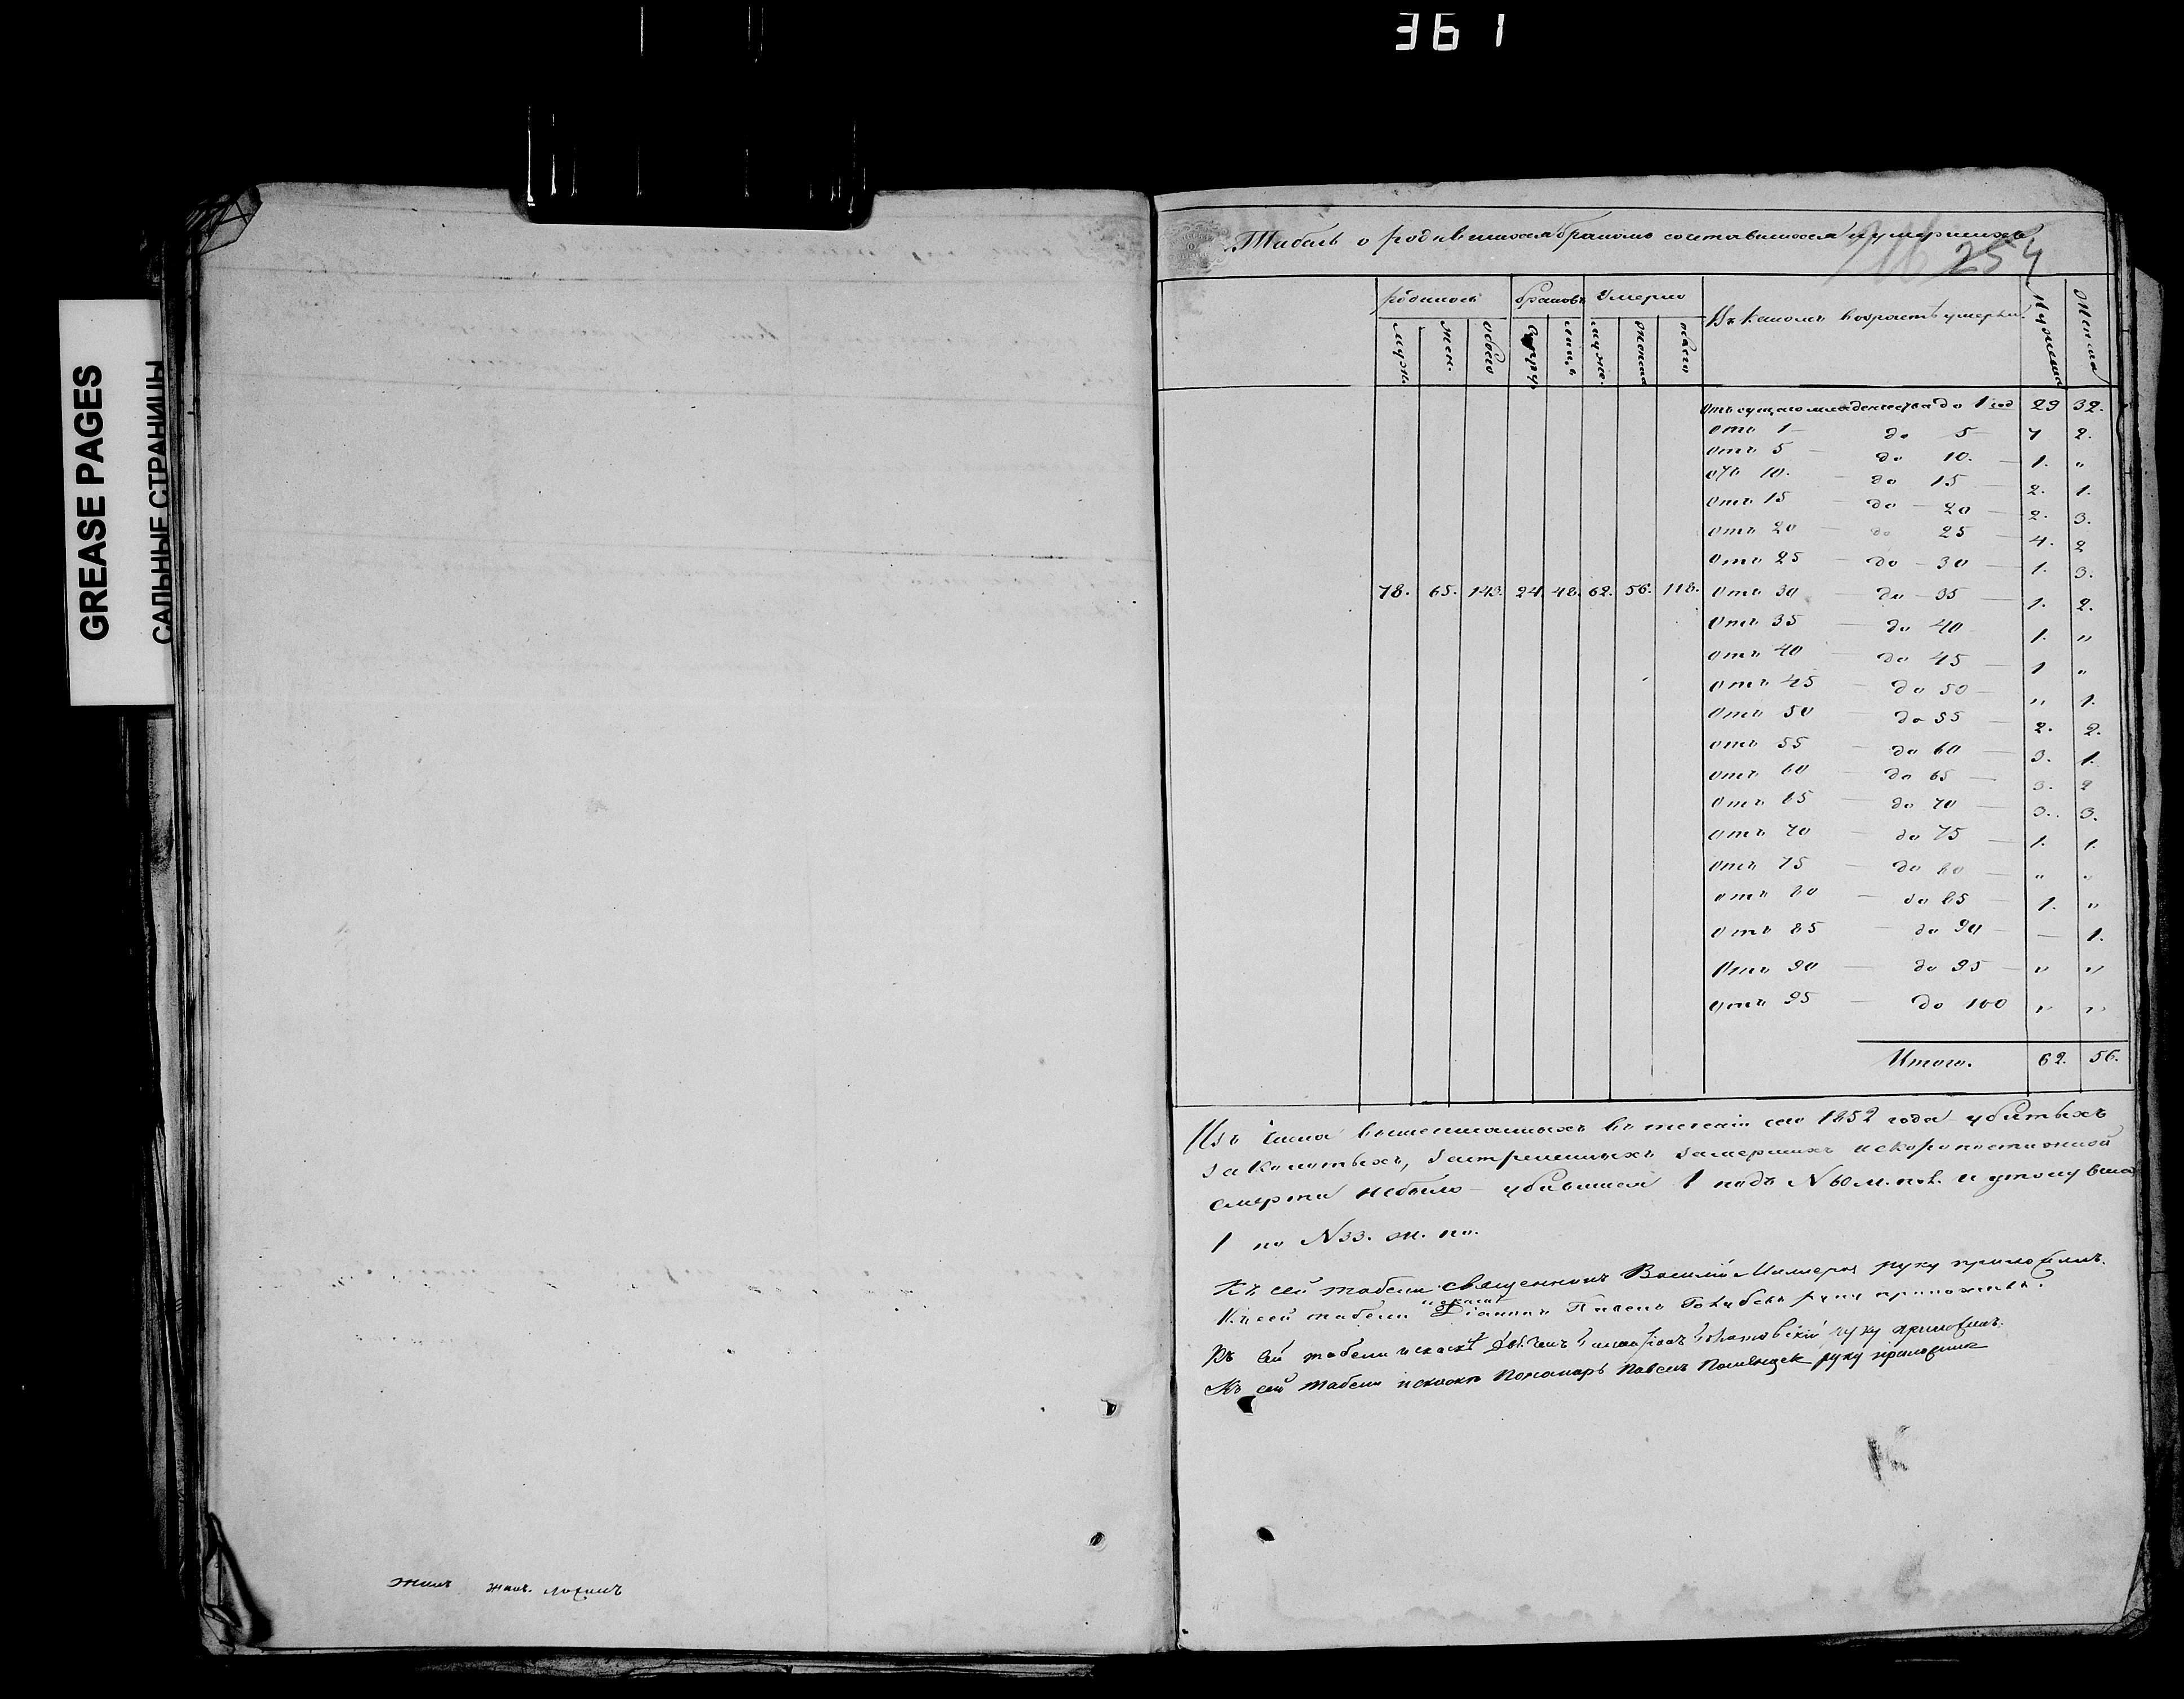 361
GREASE PAGES
САЛЬНЫЕ СТРАНИЦЫ
Табель о родившихся бракомъ сочетавшихся и умершихъ
254
родилось браковъ Умерло Въ какомъ возрастѣ умерли. Мужеска Женска
муж. жен. обоего лицъ муже. женска всего
Отъ сущаго младенчества до 1 год 29 32.
отъ 1 — до 5 — 7 2.
отъ 5 — до 10. — 1. "
отъ 10. — до 15 — 2. 1.
Отъ 15 — до — 20 — 2. 3.
отъ 20 — до 25 — 4. 2
отъ 25 — до — 30 — 1. 3.
78. 65. 143. 24. 48. 62. 56. 118. Отъ 30 — до — 35 — 1. 2.
Отъ 35 — до 40 1. "
отъ 40 — до 45 — 1 "
отъ 45 — до 50 — " 1.
Отъ 50 — до 55 — 2. 2.
отъ 55 — до 60 — 3. 1.
отъ 60 — до 65 — 3. 2
Отъ 65 — до 70 — 3. 3.
отъ 70 — до 75 — 1. 1.
отъ 75 — до 80 — " "
отъ 80 — до 85 — 1. "
отъ 85 — до 90 — — 1.
Отъ 90 — до 95 — " "
отъ 95 — до 100 " "
Итого. 62. 56.
Изъ числа вышеписанныхъ въ теченіи сего 1852 года убитыхъ
заколотыхъ, застреленныхъ замерзшихъ и скоропостижной
смерти небыло — убившися 1 подъ N 60 м. пол. и утонувша
1 по N 33. ж. по.
Къ сей табели священникъ Василій руку приложилъ.
Къ сей табели Діаконъ Павелъ руку приложилъ.
Къ сей табели руку приложилъ.
Къ сей табели Пономарь Павелъ руку приложилъ
жилъ жил.